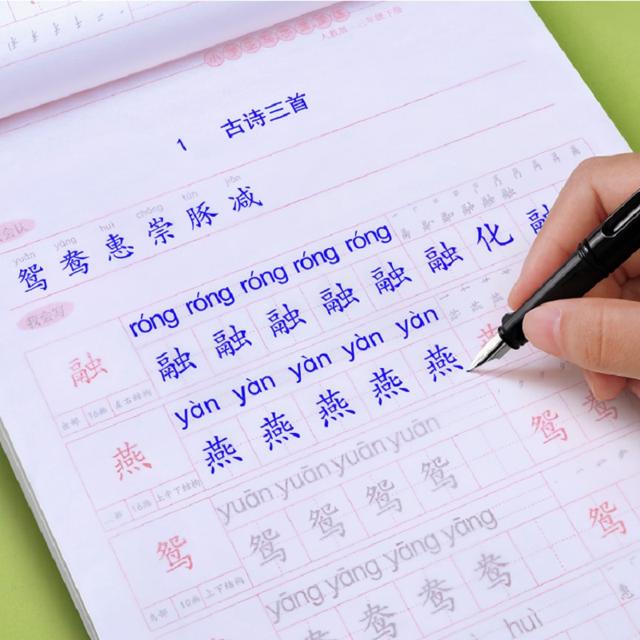 1 古诗三首
yuān yāng huì chóng tún jiǎn
鸳 鸯 惠 崇 豚 减
我会写
róng róng róng róng róng
融 融 融 融 融 融 化 融
融
yàn yàn yàn yàn yàn
燕 燕 燕 燕 燕
燕
16画 上中下结构
yuān yuān yuān yuān
鸳 鸳 鸳 鸳 鸳 鸯
鸳
鸟部 10画 上下结构
yāng yāng yāng yāng
鸯 鸯 鸯 鸯 鸳
huì